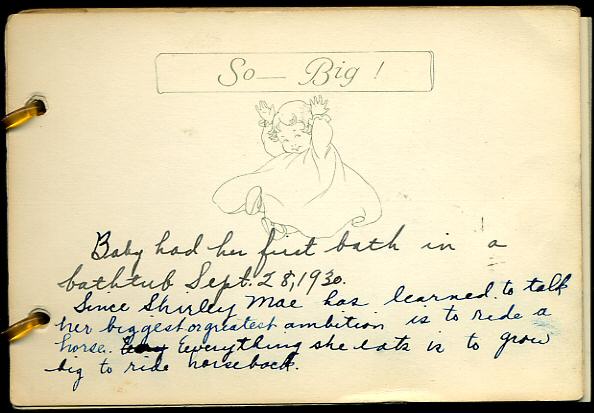 So— Big!
Baby had her first bath in a
bathtub Sept. 28, 1930.
Since Shirley Mae has learned to talk
her biggest or greatest ambition is to ride a
horse. Everything she eats is to grow
big to ride horseback.